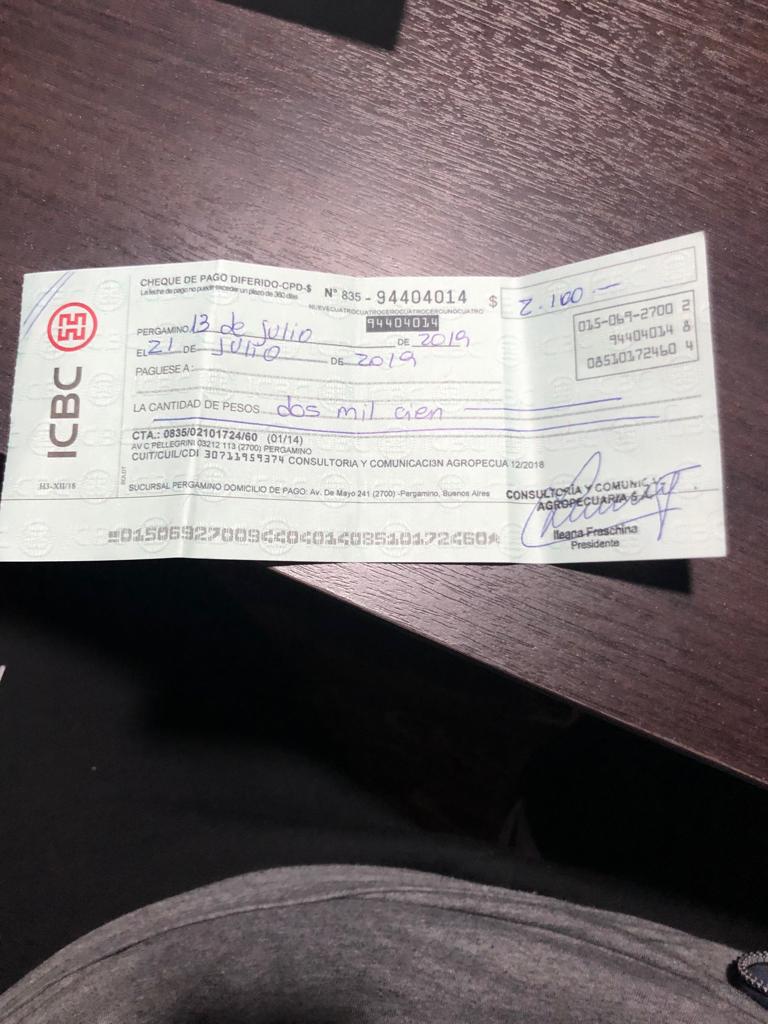 ICBC
CHEQUE DE PAGO DIFERIDO-CPD-$ Nº 835 - 94404014 $ 2.100 —
La fecha de pago no puede exceder un plazo de 360 días
NUEVECUATROCUATROCEROCUATROCEROUNOCUATRO
94404014
015-069-2700 2
94404014 8
08510172460 4
PERGAMINO 13 de Julio DE 2019
EL 21 DE Julio DE 2019
PAGUESE A:
LA CANTIDAD DE PESOS dos mil cien
CTA.: 0835/02101724/60 (01/14)
AV C PELLEGRINI 03212 113 (2700) PERGAMINO
CUIT/CUIL/CDI 30711959374 CONSULTORIA Y COMUNICACI3N AGROPECUA 12/2018
BOLDT
H3-XII/18
SUCURSAL PERGAMINO DOMICILIO DE PAGO: Av. De Mayo 241 (2700) -Pergamino, Buenos Aires
CONSULTORÍA Y COMUNIC
AGROPECUARIA S.A.
Ileana Fraschina
Presidente
01506927009440401408510172460